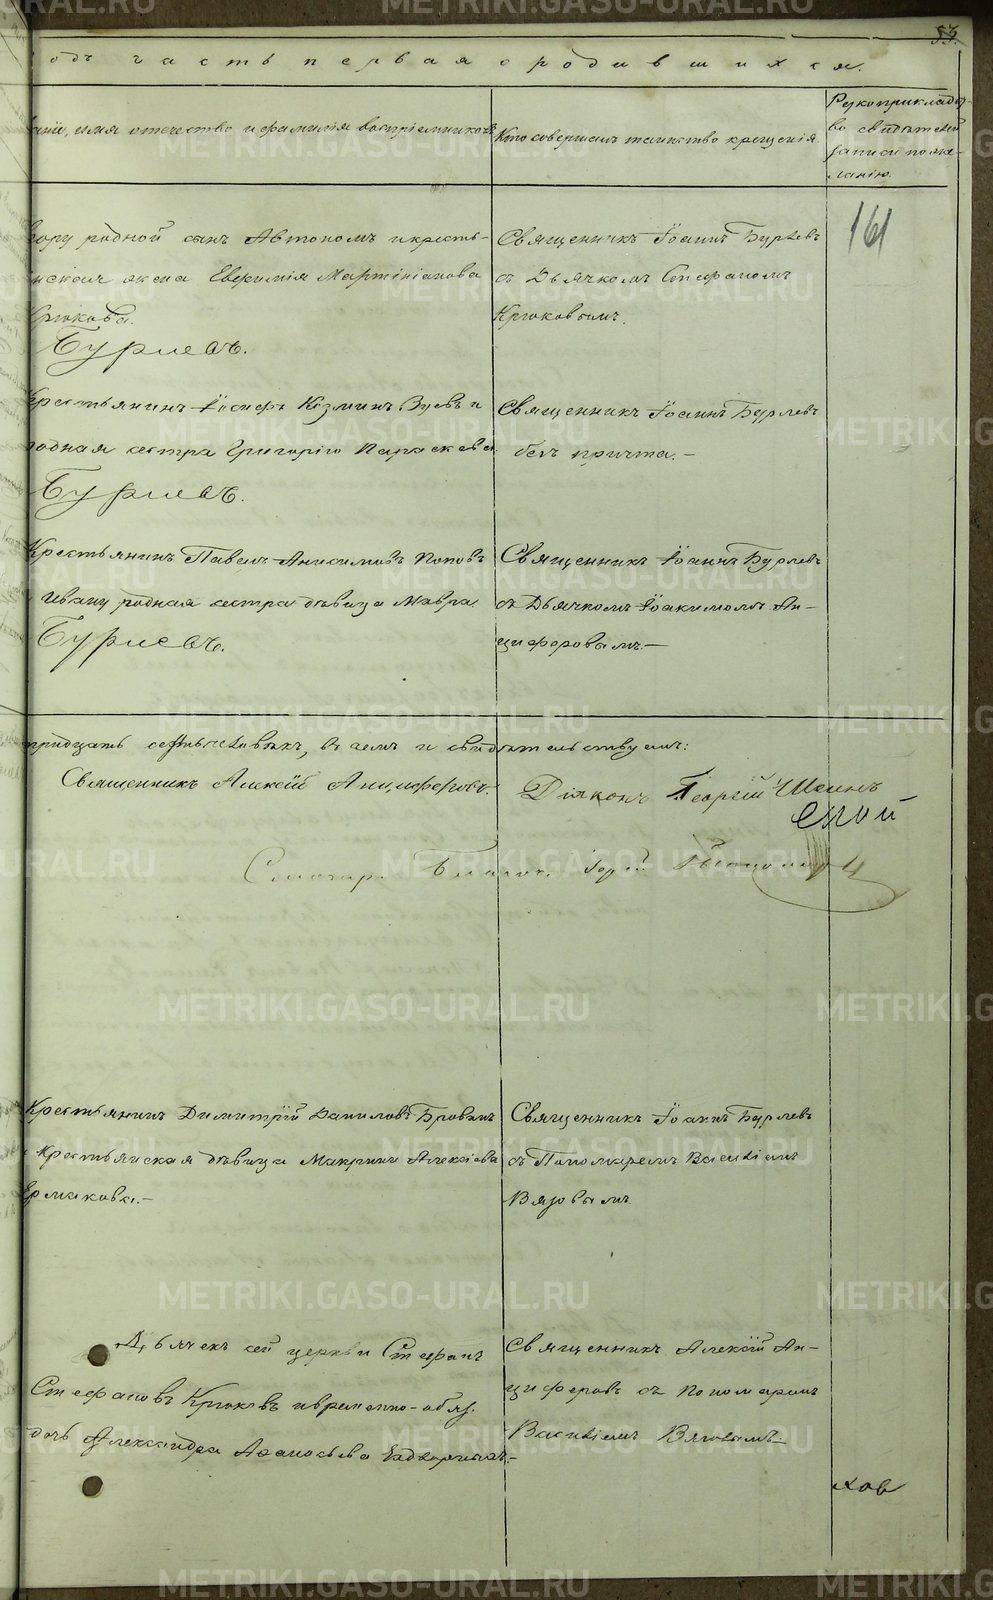 53.
одъ часть первая о родившихся.
аніе, имя отечество и фамилія воспріемниковъ.
Кто совершалъ таинство крещенія.
Рукоприкладс-
во свидѣтелей
записи по же-
ланію.
161
родной сынъ Автономъ и кресть-
янская жена Евфимія Мартініанова
Крюкова.
Буриевъ.
Священникъ Іоаннъ Бурлевъ
съ Дьячкомъ Стефаномъ
Крюковымъ.
Крестьянинъ Іосифъ Козминъ Зуевъ и
родная сестра Григорію Параскева
Буриевъ.
Священникъ Іоаннъ Бурлевъ
безъ причта.-
Крестьянинъ Павелъ Анисимовъ Поповъ
Ивану родная сестра дѣвица Мавра.
Буриевъ.
Священникъ Іоаннъ Бурлевъ
съ Дьячкомъ Іоакимомъ Ан-
циферовымъ.-
тридцать человѣкъ, въ чемъ и свидѣтельствуемъ:
Священникъ Алексій Анциферовъ.
Діаконъ Георгій Шеинъ
Крестьянинъ Димитрій Даниловъ Бровинъ
и Крестьянская дѣвица Макрина Алексіева
Ермакова.-
Священникъ Іоаннъ Бурлевъ
съ Пономаремъ Василіемъ
Вязовымъ
Дьячекъ сей церкви Стефанъ
Стефановъ Крюковъ и временно-обяз.
дочь Александра Афанасьева
Священникъ Алексій Ан-
циферовъ съ Пономаремъ
Василіемъ Вязовымъ.-
ховъ
METRIKI.GASO-URAL.RU